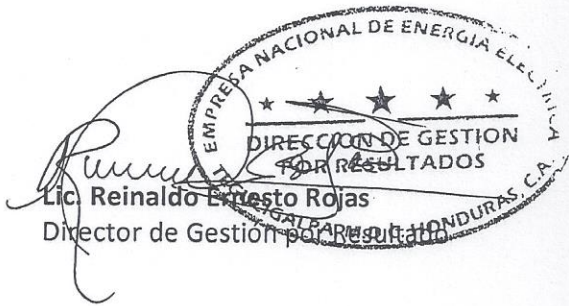 EMPRESA NACIONAL DE ENERGIA ELECTRICA
DIRECCION DE GESTION
POR RESULTADOS
TEGUCIGALPA, M.D.C. HONDURAS, C.A.
Lic. Reinaldo Ernesto Rojas
Director de Gestión por Resultado